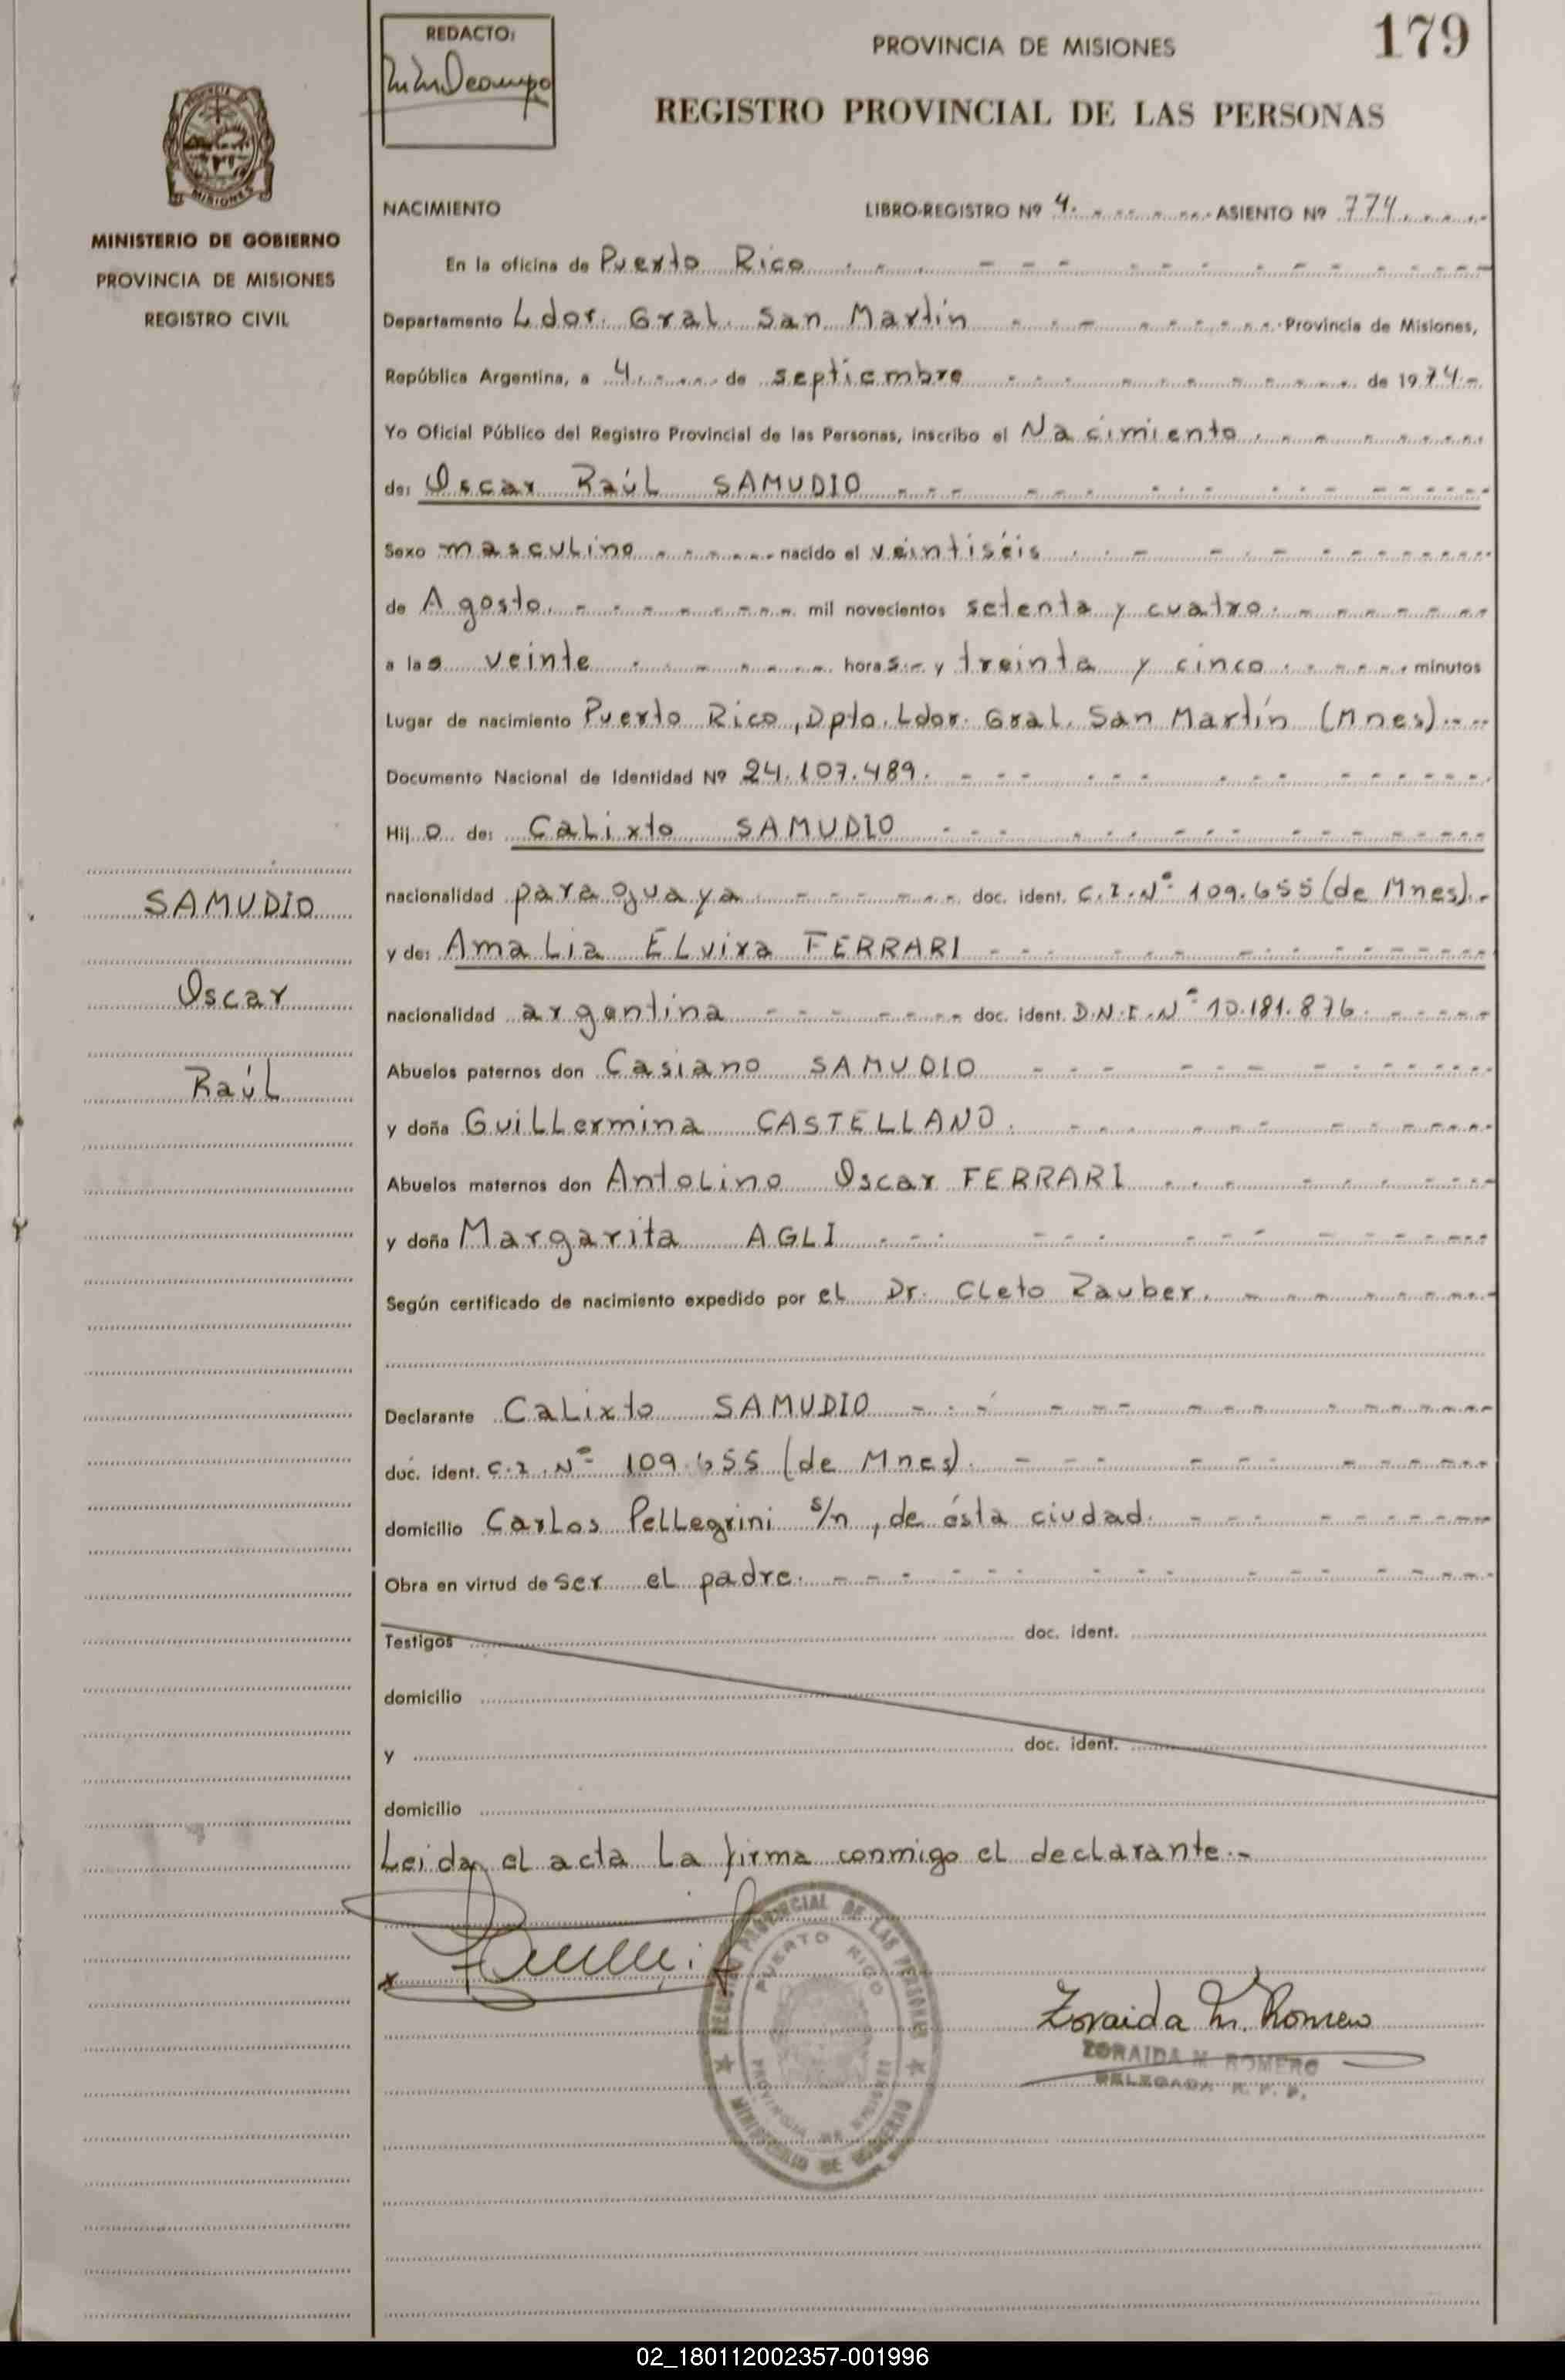 REDACTO:
PROVINCIA DE MISIONES
179
REGISTRO PROVINCIAL DE LAS PERSONAS
MISIONES
MINISTERIO DE GOBIERNO
PROVINCIA DE MISIONES
REGISTRO CIVIL
SAMUDIO
Oscar
Raúl
NACIMIENTO LIBRO-REGISTRO Nº 4. ASIENTO Nº 774
En la oficina de Puerto Rico
Departamento Ldor. Gral. San Martín Provincia de Misiones,
República Argentina, a 4 de septiembre de 1974.-
Yo Oficial Público del Registro Provincial de las Personas, inscribo el Nacimiento
de: Oscar Raúl SAMUDIO
Sexo masculino nacido el veintiséis
de Agosto mil novecientos setenta y cuatro
a las veinte horas y treinta y cinco minutos
Lugar de nacimiento Puerto Rico, Dpto. Ldor. Gral. San Martín (Mnes)
Documento Nacional de Identidad Nº 24.107.489.
Hijo de: Calixto SAMUDIO
nacionalidad paraguaya doc. ident. C.I. Nº 109.655 (de Mnes).-
y de: Amalia Elvira FERRARI
nacionalidad argentina doc. ident. D.N.I. Nº 10.181.876.
Abuelos paternos don Casiano SAMUDIO
y doña Guillermina CASTELLANO.
Abuelos maternos don Antolino Oscar FERRARI
y doña Margarita AGLI
Según certificado de nacimiento expedido por el Dr. Cleto Rauber.
Declarante Calixto SAMUDIO
doc. ident. C.I. Nº 109.655 (de Mnes).
domicilio Carlos Pellegrini s/n, de ésta ciudad.
Obra en virtud de ser el padre.
Testigos doc. ident.
domicilio
y doc. ident.
domicilio
Leida el acta la firma conmigo el declarante.-
REGISTRO PROVINCIAL DE LAS PERSONAS
PUERTO RICO
PROVINCIA DE MISIONES
MINISTERIO DE GOBIERNO
Zoraida M. Romero
ZORAIDA M. ROMERO
DELEGADA R. P. P.
02_180112002357-001996